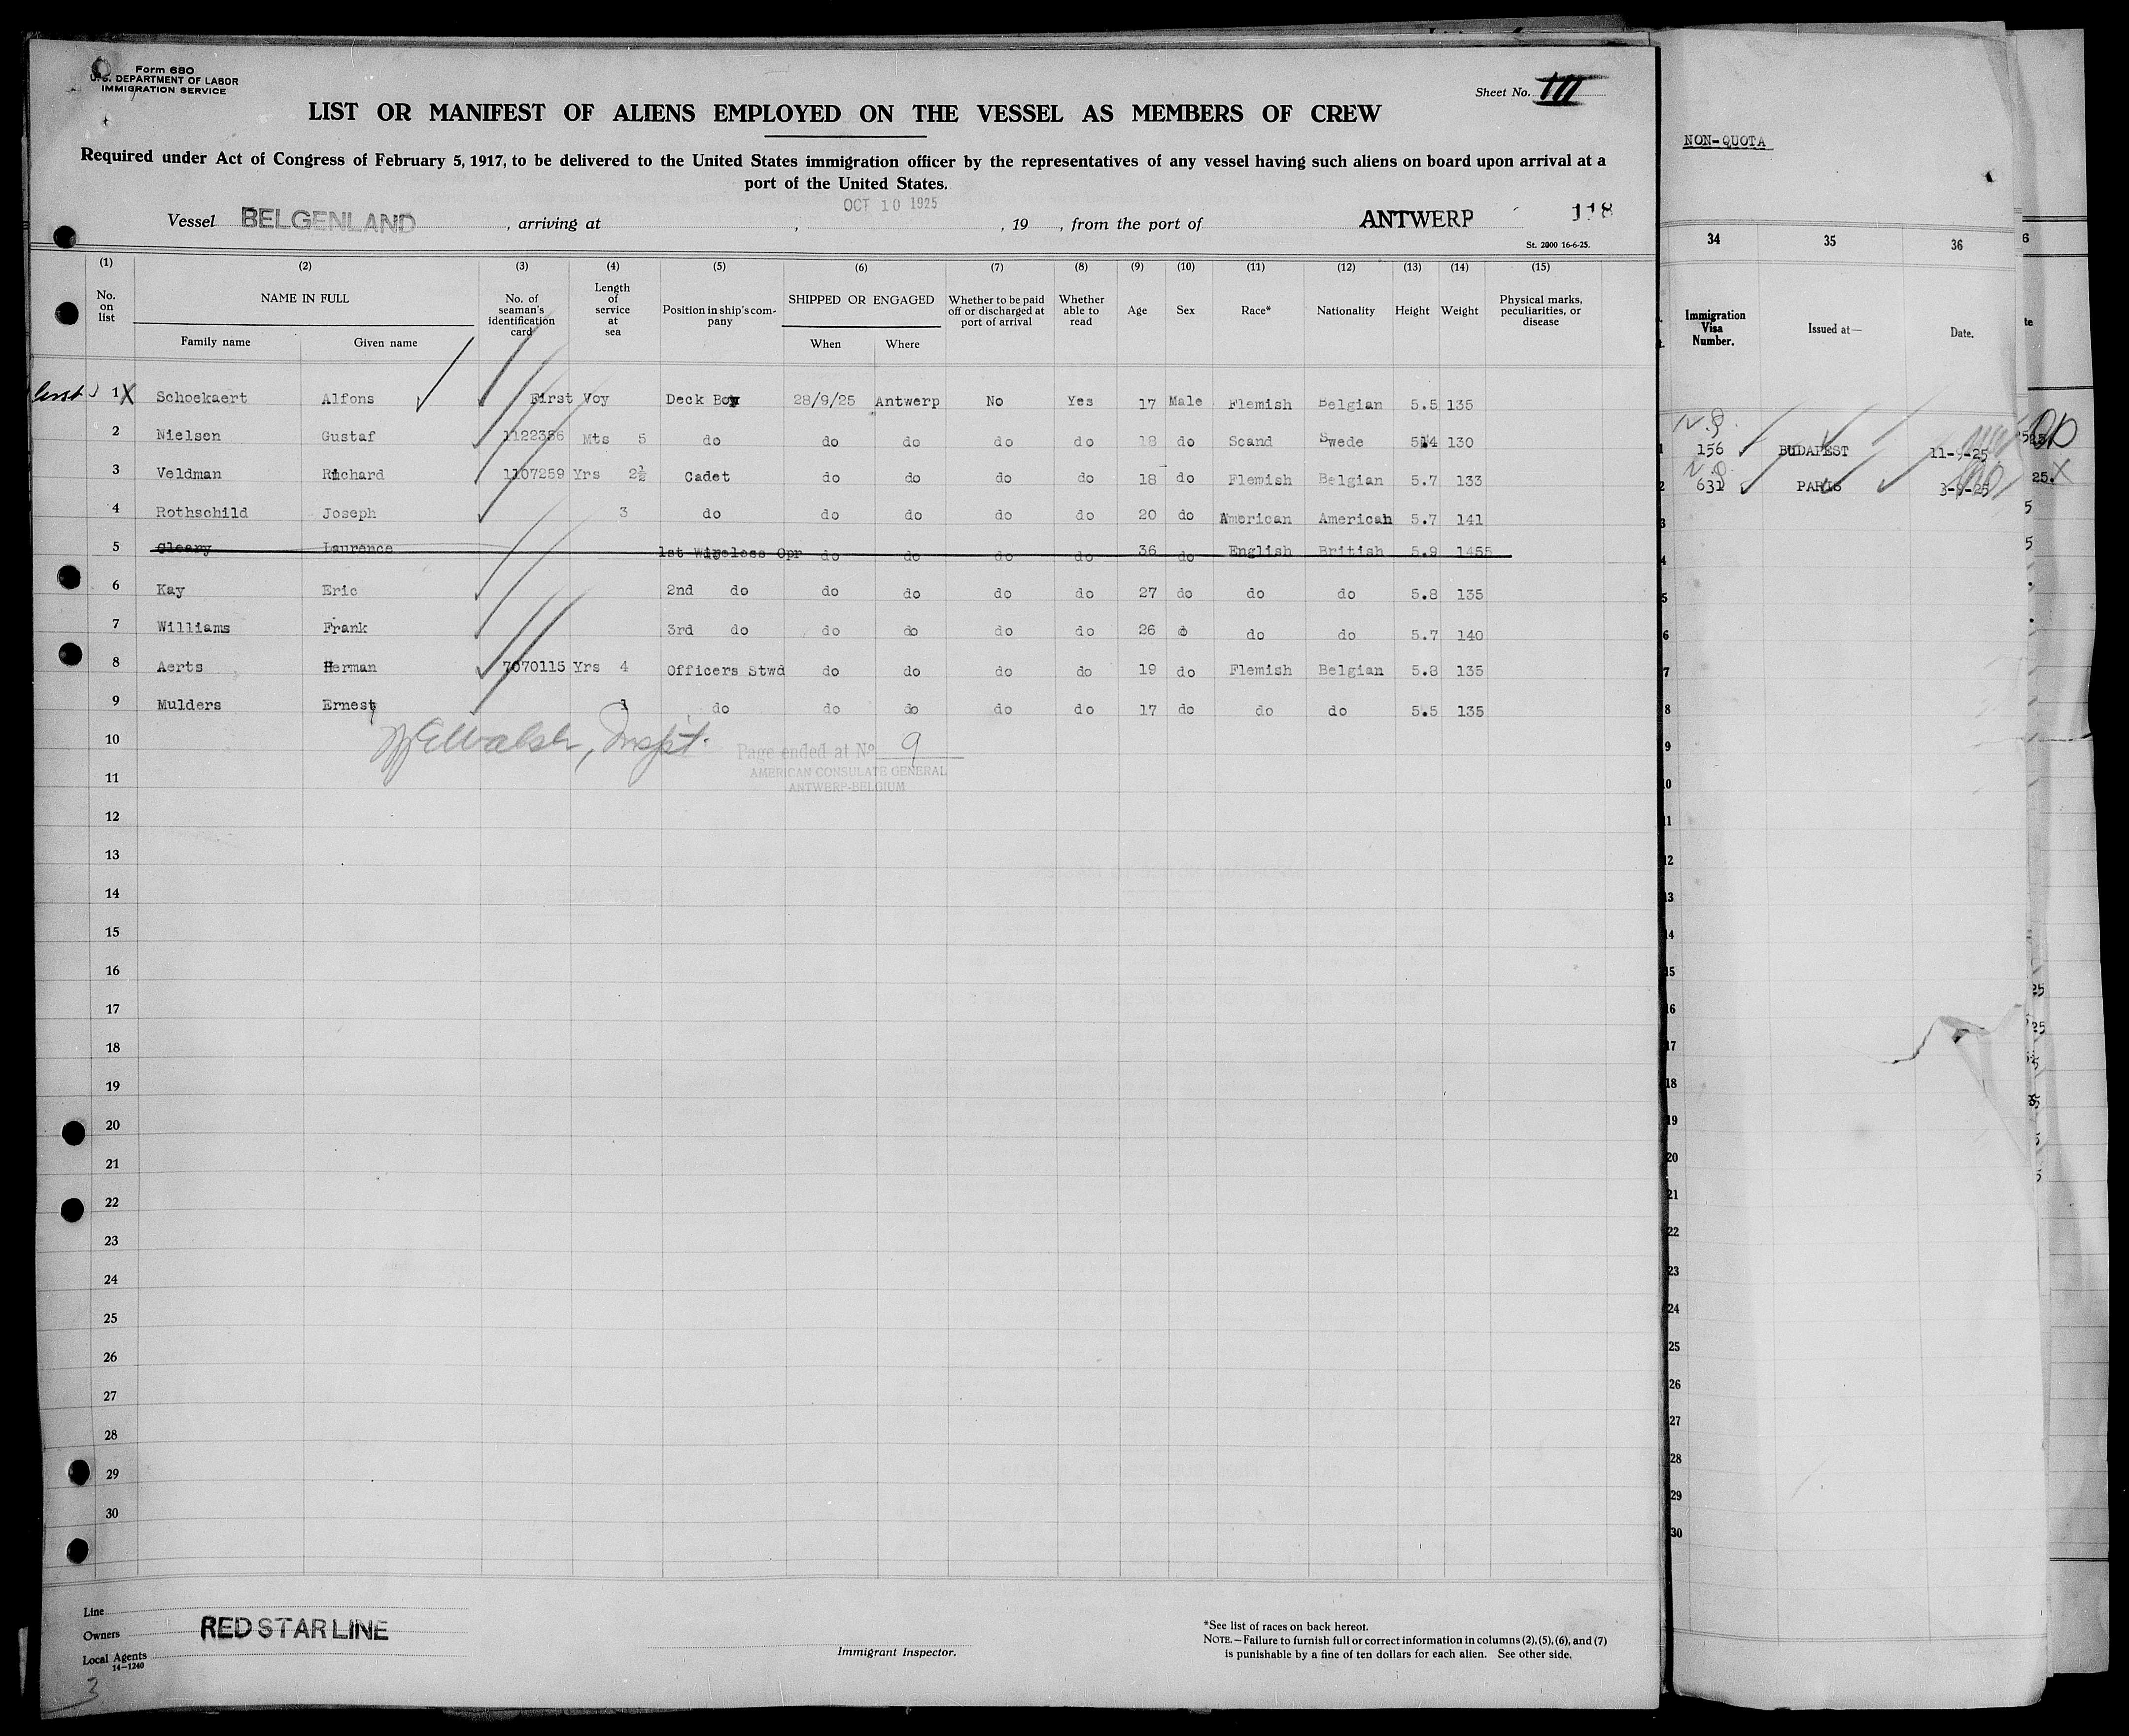 Form 680
U.S. DEPARTMENT OF LABOR
IMMIGRATION SERVICE
Sheet No. III
LIST OR MANIFEST OF ALIENS EMPLOYED ON THE VESSEL AS MEMBERS OF CREW
Required under Act of Congress of February 5, 1917, to be delivered to the United States immigration officer by the representatives of any vessel having such aliens on board upon arrival at a
port of the United States.
OCT 10 1925
Vessel BELGENLAND, arriving at , , 19 , from the port of ANTWERP 118
St. 2000 16-6-25.
(1) (2) (3) (4) (5) (6) (7) (8) (9) (10) (11) (12) (13) (14) (15)
No. on list NAME IN FULL Family name Given name No. of seaman's identification card Length of service at sea Position in ship's company SHIPPED OR ENGAGED When Where Whether to be paid off or discharged at port of arrival Whether able to read Age Sex Race* Nationality Height Weight Physical marks, peculiarities, or disease
1 X Schockaert Alfons First Voy Deck Boy 28/9/25 Antwerp No Yes 17 Male Flemish Belgian 5.5 135
2 Nielsen Gustaf 1122356 Mts 5 do do do do do 18 do Scand Swede 5.4 130
3 Veldman Richard 1107259 Yrs 2½ Cadet do do do do 18 do Flemish Belgian 5.7 133
4 Rothschild Joseph 3 do do do do do 20 do American American 5.7 141
5 Cleary Laurence 1st Wireless Opr do do do do 36 do English British 5.9 1455
6 Kay Eric 2nd do do do do do 27 do do do 5.8 135
7 Williams Frank 3rd do do do do do 26 do do do 5.7 140
8 Aerts Herman 7070115 Yrs 4 Officers Stwd do do do do 19 do Flemish Belgian 5.8 135
9 Mulders Ernest 1 do do do do do 17 do do do 5.5 135
10 Walsh, Inspt. Page ended at No 9
AMERICAN CONSULATE GENERAL
11 ANTWERP-BELGIUM
12
13
14
15
16
17
18
19
20
21
22
23
24
25
26
27
28
29
30
Line
Owners RED STAR LINE
Local Agents
14-1240
3
Immigrant Inspector.
*See list of races on back hereof.
NOTE.—Failure to furnish full or correct information in columns (2), (5), (6), and (7)
is punishable by a fine of ten dollars for each alien. See other side.
NON-QUOTA
34 35 36
Immigration Visa Number. Issued at— Date.
1 156 BUDAPEST 11-9-25
2 631 PARIS 3-9-25
3
4
5
6
7
8
9
10
11
12
13
14
15
16
17
18
19
20
21
22
23
24
25
26
27
28
29
30